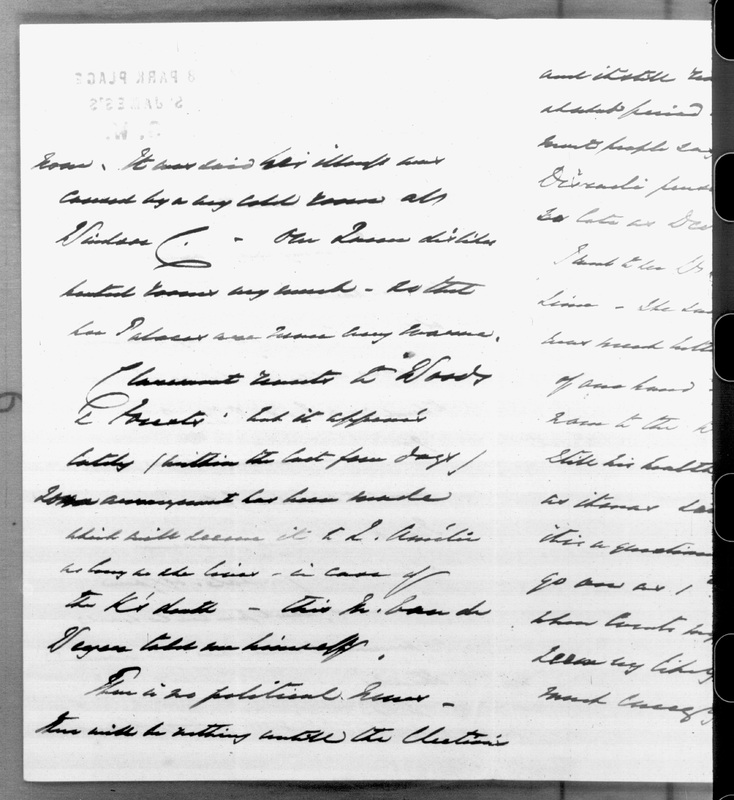 8 PARK PLACE
ST JAMES'S
S. W.
room. It was said his illness was
caused by a very cold room at
Windsor C. – Our Queen dislikes
heated rooms very much – so that
her Palaces are never very warm.
Claremont reverts to Woods
& Forests – but it appears
lately (within the last few days)
Some arrangement has been made
which will secure it to Q. Amélie
as long as she lives – in case of
the K's death – this M. Van de
Weyer told me himself.
There is no political news –
there will be nothing untill the Elections
and it still
most people say
Disraeli
so late as
I went to see
time – She
was much
of one hand
even to the
Still his health
as it was
this
go over as I
when
much